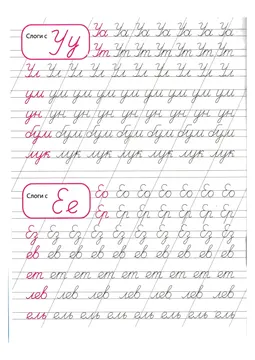 Слоги с Уу
Уа Уа Уа Уа Уа Уа Уа
Ут Ут Ут Ут Ут Ут Ут
Ул Ул Ул Ул Ул Ул Ул Ул Ул Ул
ум ум ум ум ум ум ум ум
ун ун ун ун ун ун ун ун ун
бум бум бум бум бум бум бум
лук лук лук лук лук лук лук
Слоги с Ее
Ео Ео Ео Ео Ео Ео
Ер Ер Ер Ер Ер Ер
Ез Ез Ез Ез Ез Ез Ез Ез Ез
ев ев ев ев ев ев ев ев ев
ет ет ет ет ет ет ет ет ет
лев лев лев лев лев лев лев
ель ель ель ель ель ель ель ель